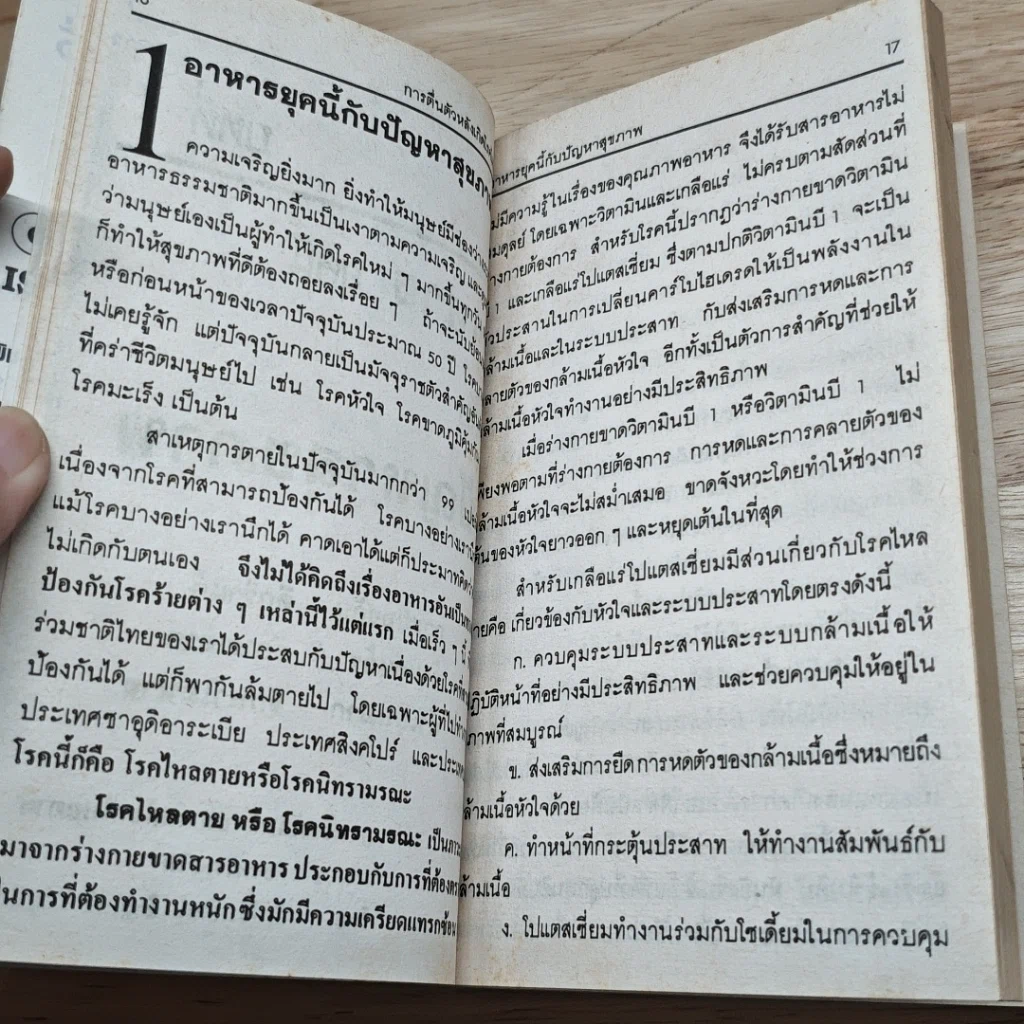 การตื่นตัวหลังเกิด
1 อาหารยุคนี้กับปัญหาสุขภา
ความเจริญยิ่งมาก ยิ่งทำให้มนุษย์มีช่องว่าง
อาหารธรรมชาติมากขึ้นเป็นเงาตามความเจริญ และ
ว่ามนุษย์เองเป็นผู้ทำให้เกิดโรคใหม่ ๆ มากขึ้นทุกวัน
ก็ทำให้สุขภาพที่ดีต้องถอยลงเรื่อย ๆ ถ้าจะนับย้อน
หรือก่อนหน้าของเวลาปัจจุบันประมาณ 50 ปี
ไม่เคยรู้จัก แต่ปัจจุบันกลายเป็นมัจจุราชตัวสำคัญ
ที่คร่าชีวิตมนุษย์ไป เช่น โรคหัวใจ โรคขาดภูมิคุ้ม
โรคมะเร็ง เป็นต้น
สาเหตุการตายในปัจจุบันมากกว่า 99
เนื่องจากโรคที่สามารถป้องกันได้ โรคบางอย่างเรา
แม้โรคบางอย่างเรานึกได้ คาดเอาได้แต่ก็ประมาท
ไม่เกิดกับตนเอง จึงไม่ได้คิดถึงเรื่องอาหารอันเป็น
ป้องกันโรคร้ายต่าง ๆ เหล่านี้ไว้แต่แรก เมื่อเร็ว ๆ นี้
ร่วมชาติไทยของเราได้ประสบกับปัญหาเนื่องด้วยโรค
ป้องกันได้ แต่ก็พากันล้มตายไป โดยเฉพาะผู้ที่ไป
ประเทศซาอุดิอาระเบีย ประเทศสิงคโปร์ และประเท
โรคนี้ก็คือ โรคไหลตายหรือโรคนิทรามรณะ
โรคไหลตาย หรือ โรคนิทรามรณะ เป็น
มาจากร่างกายขาดสารอาหาร ประกอบกับการที่ต้อง
ในการที่ต้องทำงานหนัก ซึ่งมักมีความเครียดแทรกซ้อน
17
อาหารยุคนี้กับปัญหาสุขภาพ
ม่มีความรู้ในเรื่องของคุณภาพอาหาร จึงได้รับสารอาหารไม่
มดุลย์ โดยเฉพาะวิตามินและเกลือแร่ ไม่ครบตามสัดส่วนที่
างกายต้องการ สำหรับโรคนี้ปรากฏว่าร่างกายขาดวิตามิน
1 และเกลือแร่โปแตสเซี่ยม ซึ่งตามปกติวิตามินบี 1 จะเป็น
ัวประสานในการเปลี่ยนคาร์โบไฮเดรดให้เป็นพลังงานใน
ล้ามเนื้อและในระบบประสาท กับส่งเสริมการหดและการ
ลายตัวของกล้ามเนื้อหัวใจ อีกทั้งเป็นตัวการสำคัญที่ช่วยให้
ล้ามเนื้อหัวใจทำงานอย่างมีประสิทธิภาพ
เมื่อร่างกายขาดวิตามินบี 1 หรือวิตามินบี 1 ไม่
พียงพอตามที่ร่างกายต้องการ การหดและการคลายตัวของ
ล้ามเนื้อหัวใจจะไม่สม่ำเสมอ ขาดจังหวะโดยทำให้ช่วงการ
ต้นของหัวใจยาวออก ๆ และหยุดเต้นในที่สุด
สำหรับเกลือแร่โปแตสเซี่ยมมีส่วนเกี่ยวกับโรคไหล
ายคือ เกี่ยวข้องกับหัวใจและระบบประสาทโดยตรงดังนี้
ก. ควบคุมระบบประสาทและระบบกล้ามเนื้อให้
ฏิบัติหน้าที่อย่างมีประสิทธิภาพ และช่วยควบคุมให้อยู่ใน
ภาพที่สมบูรณ์
ข. ส่งเสริมการยืด การหดตัวของกล้ามเนื้อซึ่งหมายถึง
ล้ามเนื้อหัวใจด้วย
ค. ทำหน้าที่กระตุ้นประสาท ให้ทำงานสัมพันธ์กับ
ล้ามเนื้อ
ง. โปแตสเซี่ยมทำงานร่วมกับโซเดี้ยมในการควบคุม